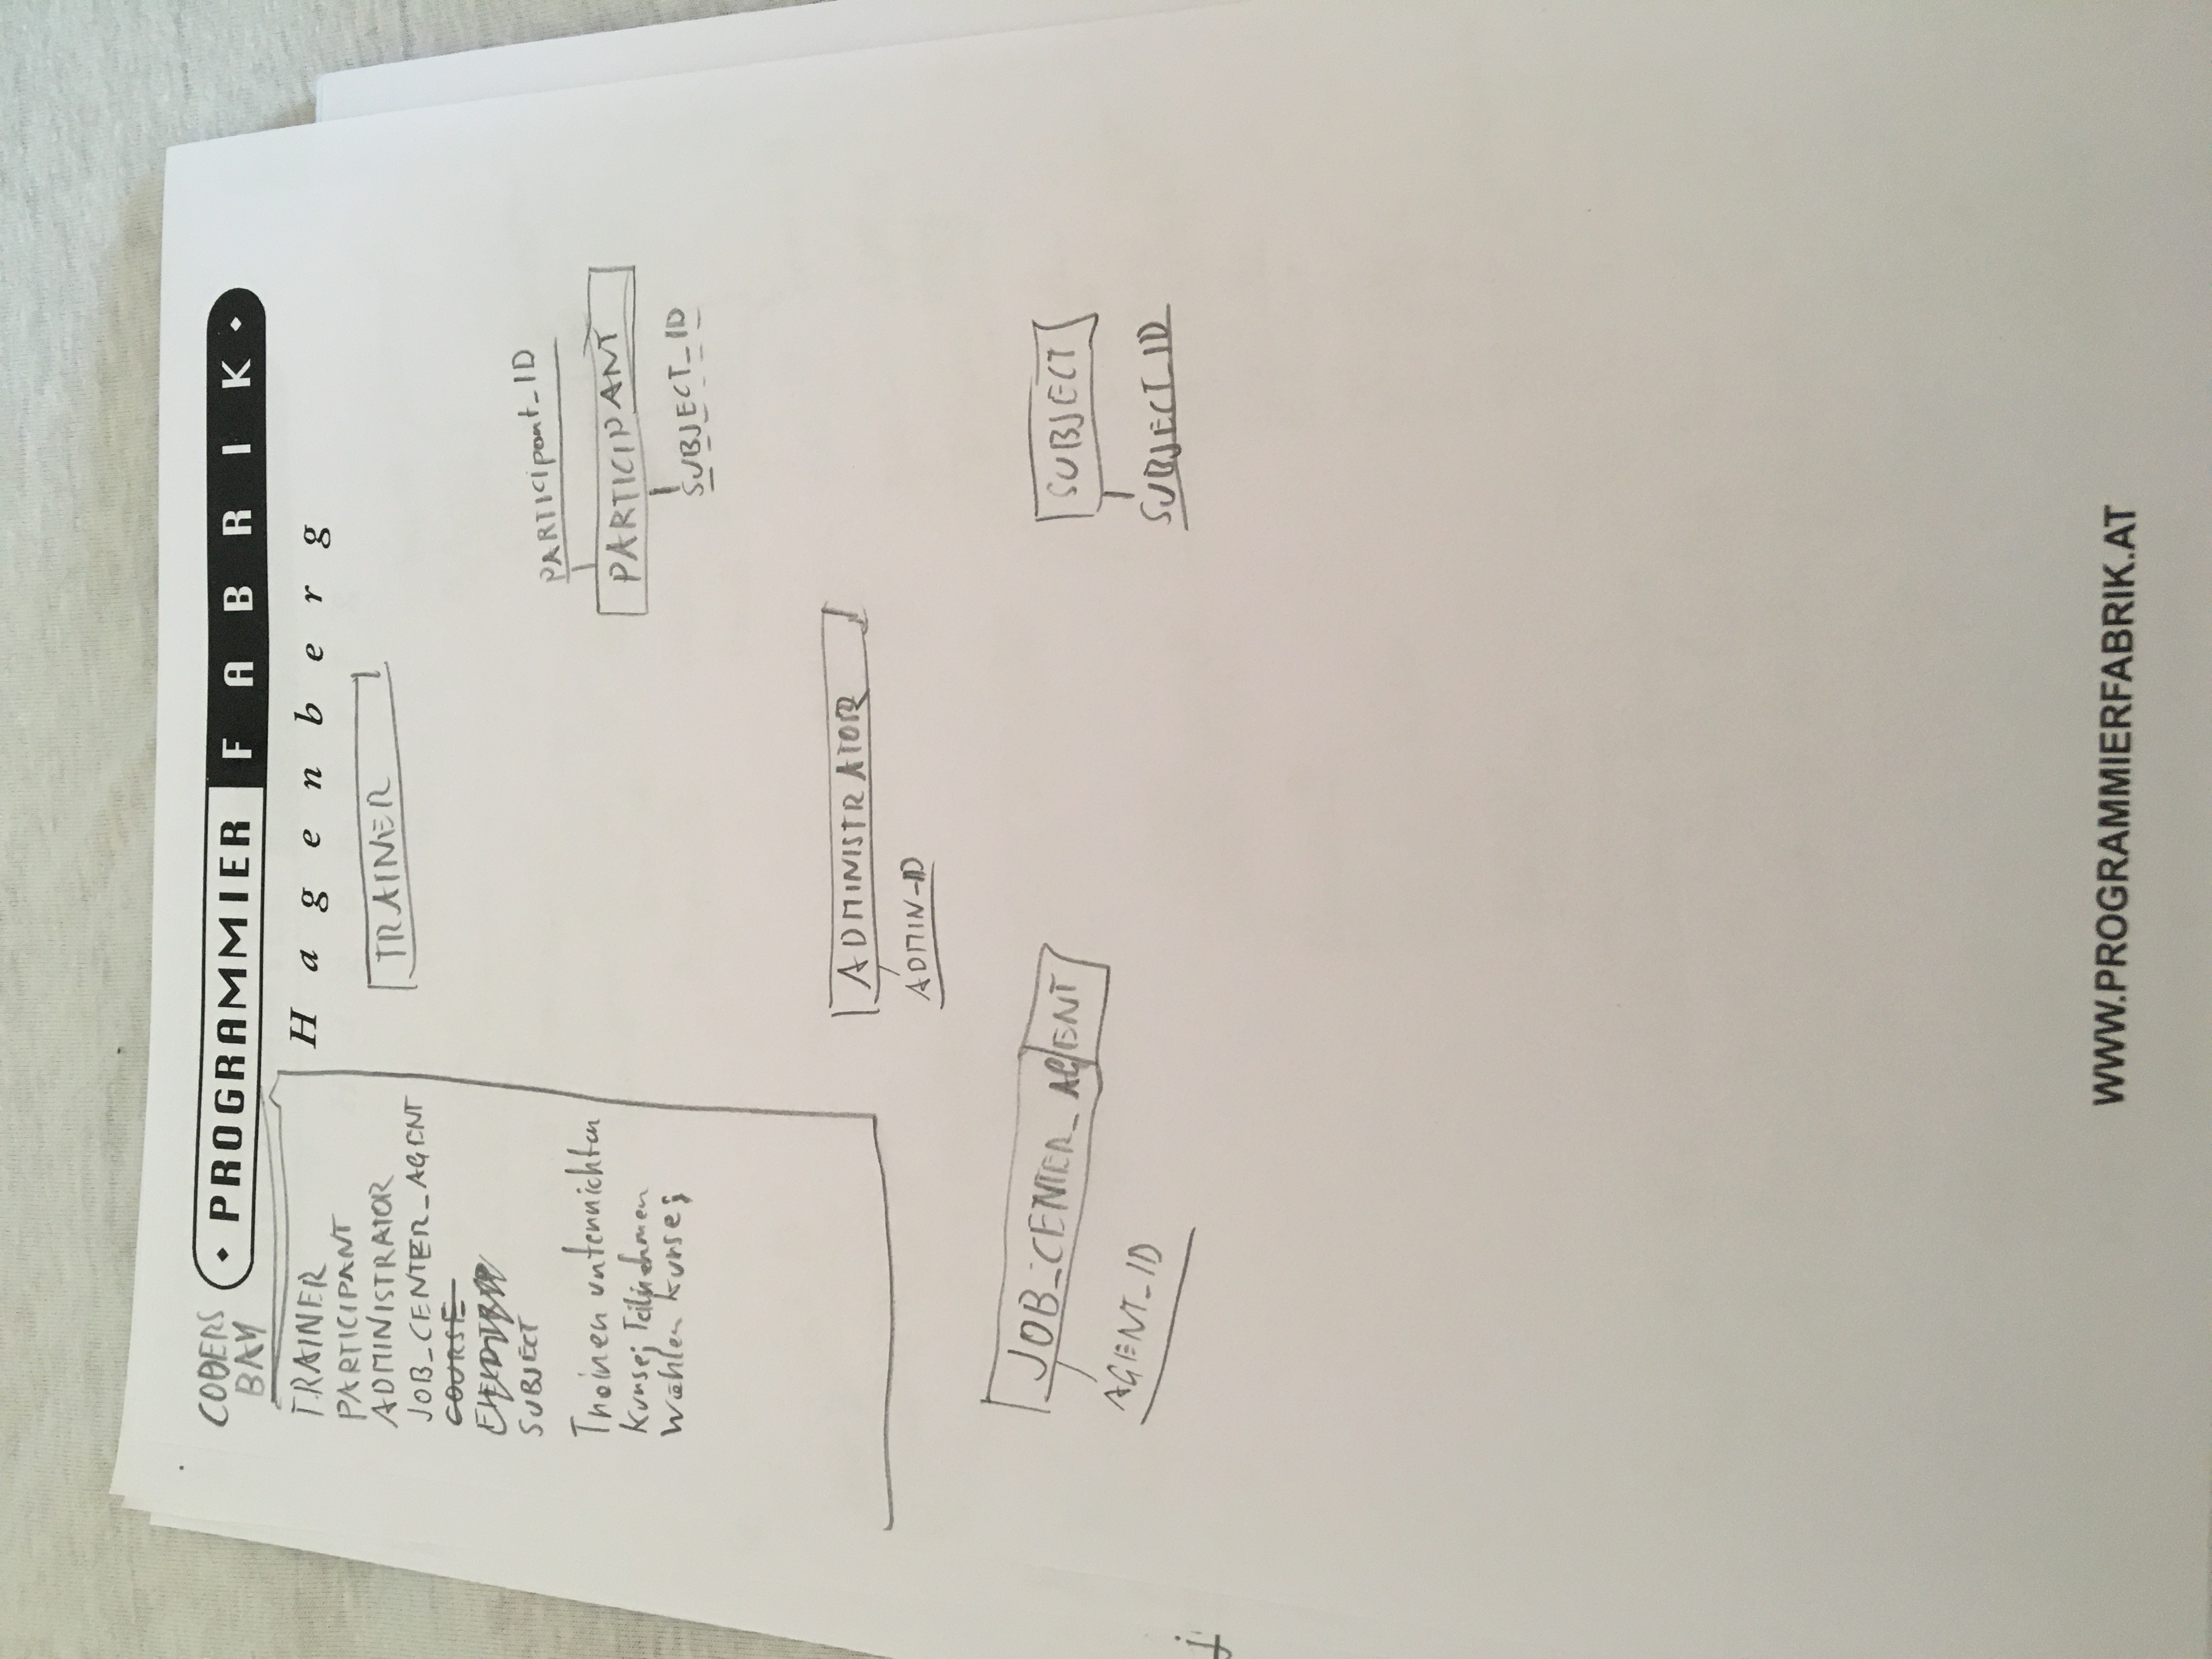 CODERS
BAY
PROGRAMMIER FABRIK
Hagenberg
TRAINER
PARTICIPANT
ADMINISTRATOR
JOB_CENTER_AGENT
COURSE
SUBJECT
Trainer unterrichten
Kurse; Teilnehmer
Wählen Kurse;
TRAINER
PARTICIPant_ID
PARTICIPANT
SUBJECT_ID
ADMINISTRATOR
ADMIN_ID
JOB_CENTER_AGENT
AGENT_ID
SUBJECT
SUBJECT_ID
WWW.PROGRAMMIERFABRIK.AT